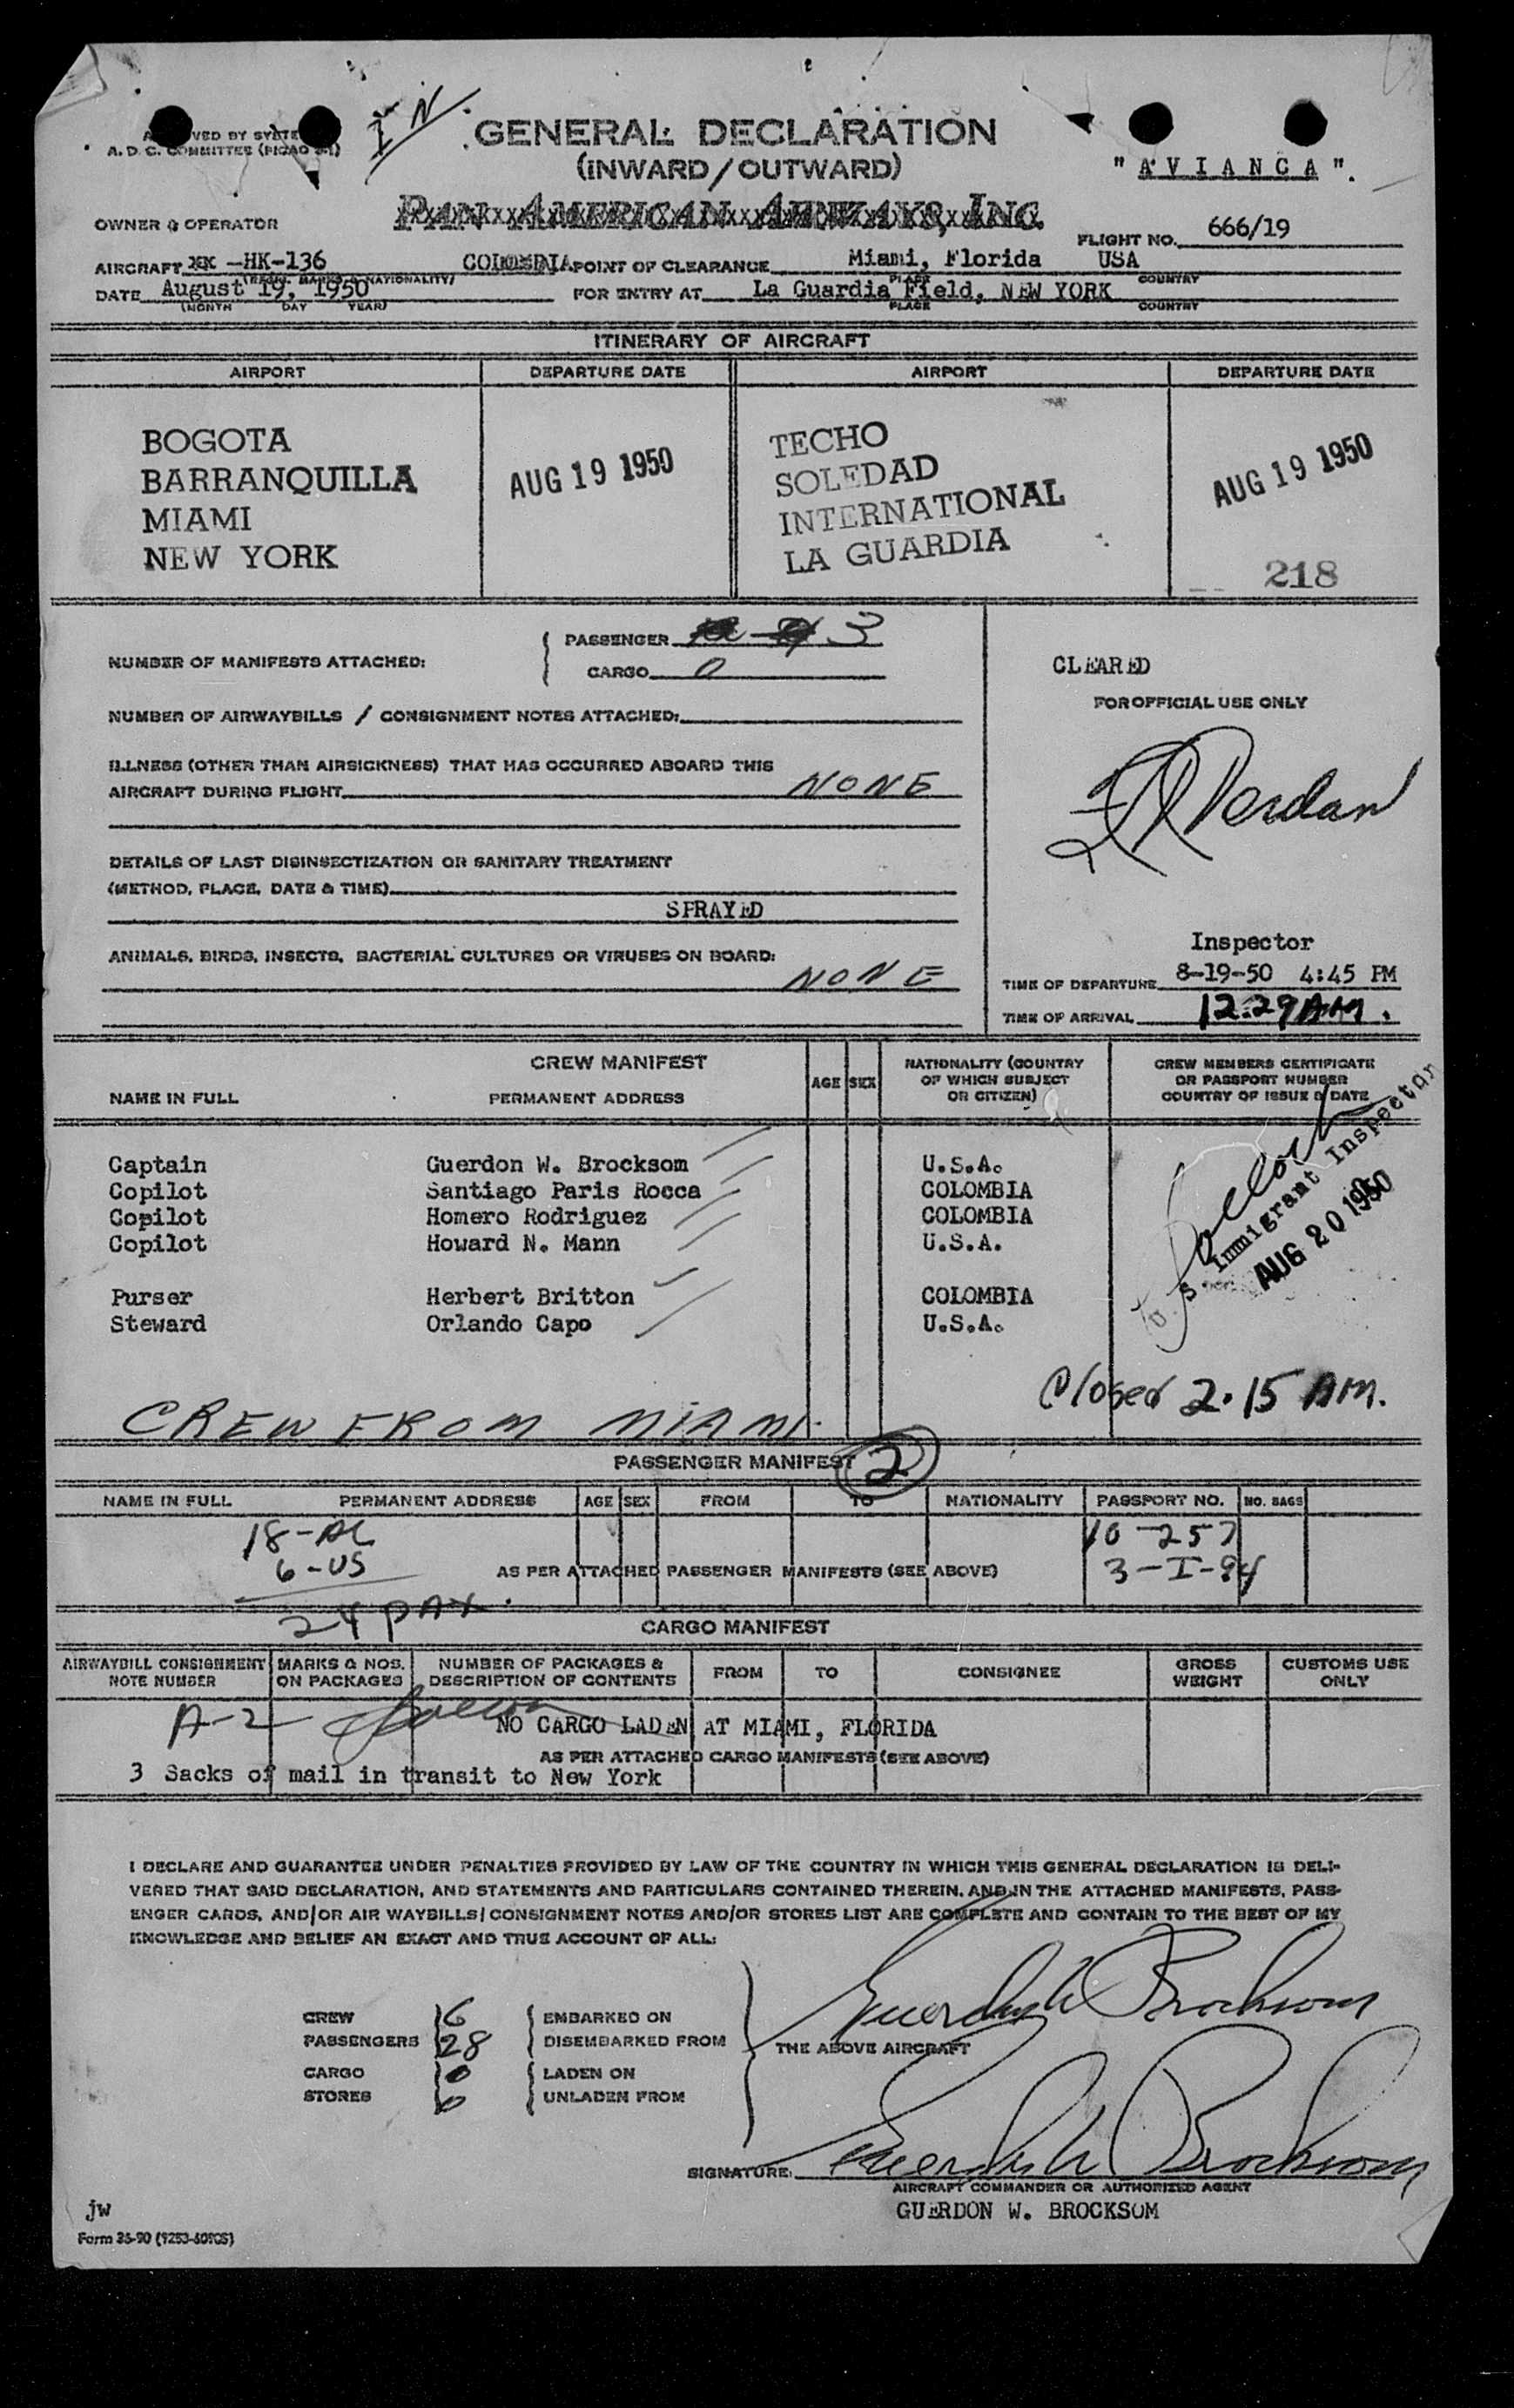 IN
GENERAL DECLARATION
(INWARD/OUTWARD)
" A V I A N C A ".
A. D. C. COMMITTEE
PAN AMERICAN AIRWAYS, INC.
OWNER & OPERATOR
FLIGHT NO. 666/19
AIRCRAFT XX -HK-136 COLOMBIA POINT OF CLEARANCE Miami, Florida USA
(REGN. MARKS & NATIONALITY) PLACE COUNTRY
DATE August 19, 1950 FOR ENTRY AT La Guardia Field, NEW YORK
(MONTH DAY YEAR) PLACE COUNTRY
ITINERARY OF AIRCRAFT
AIRPORT DEPARTURE DATE AIRPORT DEPARTURE DATE
BOGOTA TECHO
BARRANQUILLA AUG 19 1950 SOLEDAD AUG 19 1950
MIAMI INTERNATIONAL
NEW YORK LA GUARDIA 218
NUMBER OF MANIFESTS ATTACHED: PASSENGER 3
CARGO 0
CLEARED
FOR OFFICIAL USE ONLY
NUMBER OF AIRWAYBILLS / CONSIGNMENT NOTES ATTACHED:
ILLNESS (OTHER THAN AIRSICKNESS) THAT HAS OCCURRED ABOARD THIS
AIRCRAFT DURING FLIGHT NONE
DETAILS OF LAST DISINSECTIZATION OR SANITARY TREATMENT
(METHOD, PLACE, DATE & TIME)
SPRAYED
ANIMALS, BIRDS, INSECTS, BACTERIAL CULTURES OR VIRUSES ON BOARD:
NONE
Inspector
TIME OF DEPARTURE 8-19-50 4:45 PM
TIME OF ARRIVAL 12:29 AM.
CREW MANIFEST
NAME IN FULL PERMANENT ADDRESS AGE SEX NATIONALITY (COUNTRY OF WHICH SUBJECT OR CITIZEN) CREW MEMBERS CERTIFICATE OR PASSPORT NUMBER COUNTRY OF ISSUE & DATE
Captain Guerdon W. Brocksom U.S.A.
Copilot Santiago Paris Rocca COLOMBIA
Copilot Homero Rodriguez COLOMBIA
Copilot Howard N. Mann U.S.A.
Purser Herbert Britton COLOMBIA
Steward Orlando Capo U.S.A.
U.S. Immigrant Inspector
AUG 20 1950
Closed 2.15 AM.
CREW FROM MIAMI
PASSENGER MANIFEST 2
NAME IN FULL PERMANENT ADDRESS AGE SEX FROM TO NATIONALITY PASSPORT NO. NO. BAGS
18-AL 10-257
6-US AS PER ATTACHED PASSENGER MANIFESTS (SEE ABOVE) 3-I-94
24 PAX.
CARGO MANIFEST
AIRWAYBILL CONSIGNMENT NOTE NUMBER MARKS & NOS. ON PACKAGES NUMBER OF PACKAGES & DESCRIPTION OF CONTENTS FROM TO CONSIGNEE GROSS WEIGHT CUSTOMS USE ONLY
A-2 NO CARGO LADEN AT MIAMI, FLORIDA
AS PER ATTACHED CARGO MANIFESTS (SEE ABOVE)
3 Sacks of mail in transit to New York
I DECLARE AND GUARANTEE UNDER PENALTIES PROVIDED BY LAW OF THE COUNTRY IN WHICH THIS GENERAL DECLARATION IS DELI-
VERED THAT SAID DECLARATION, AND STATEMENTS AND PARTICULARS CONTAINED THEREIN, AND IN THE ATTACHED MANIFESTS, PASS-
ENGER CARDS, AND/OR AIR WAYBILLS/CONSIGNMENT NOTES AND/OR STORES LIST ARE COMPLETE AND CONTAIN TO THE BEST OF MY
KNOWLEDGE AND BELIEF AN EXACT AND TRUE ACCOUNT OF ALL:
Guerdon W Brocksom
CREW 6 EMBARKED ON
PASSENGERS 28 DISEMBARKED FROM THE ABOVE AIRCRAFT
CARGO 0 LADEN ON
STORES 0 UNLADEN FROM
SIGNATURE: Guerdon W Brocksom
AIRCRAFT COMMANDER OR AUTHORIZED AGENT
GUERDON W. BROCKSOM
jw